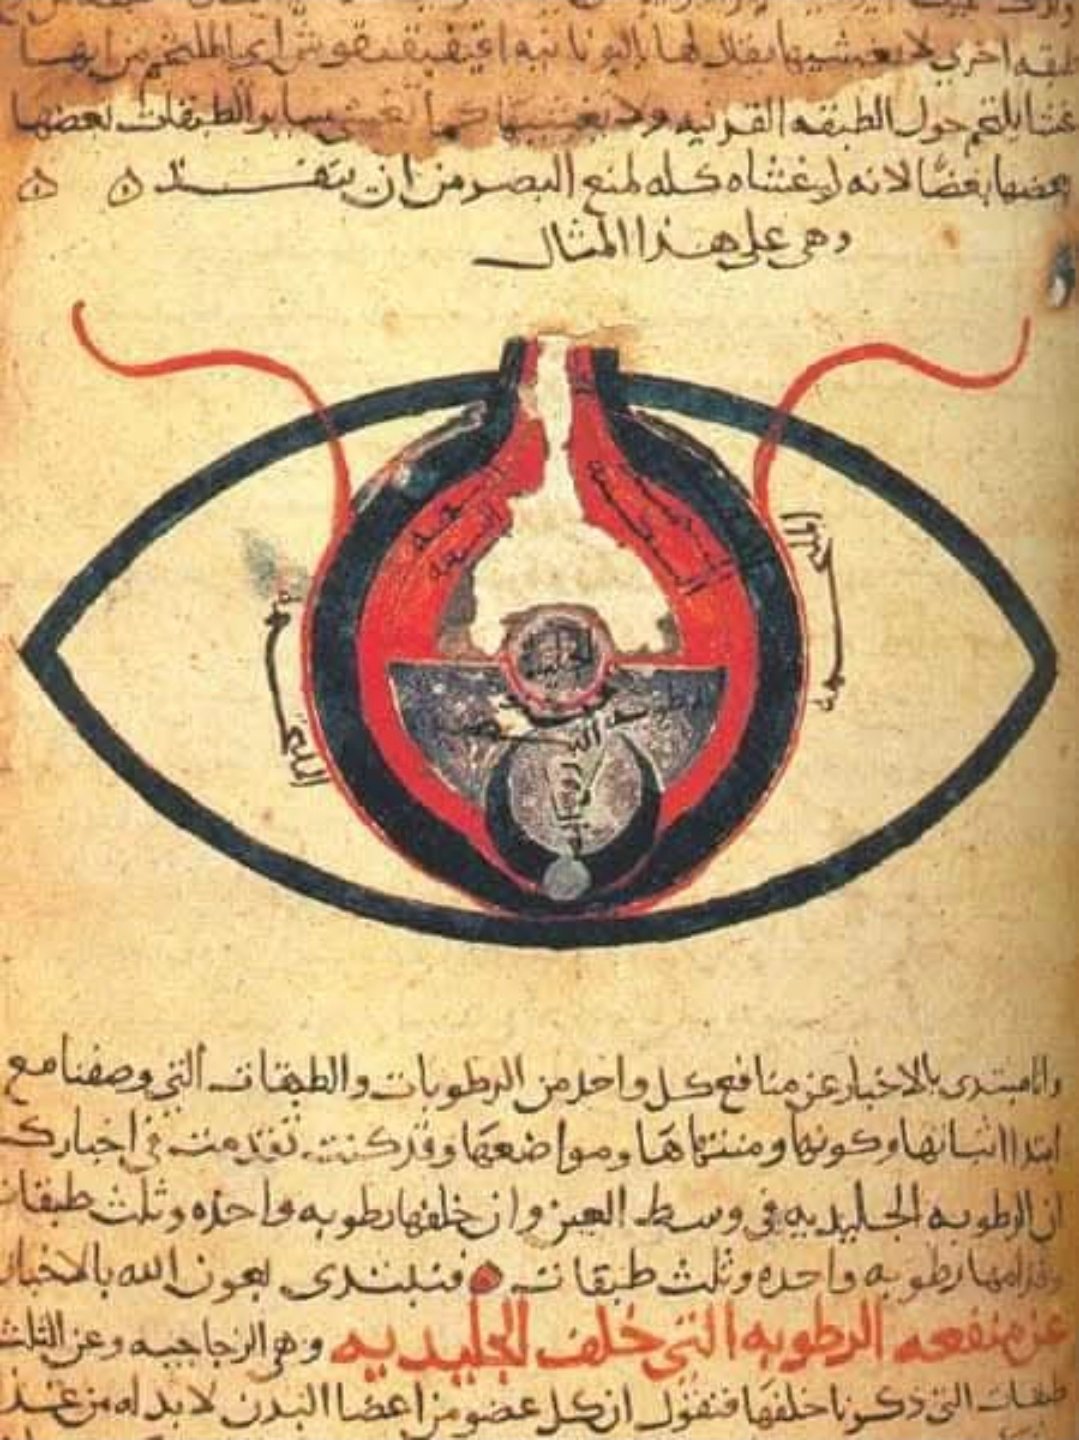 طبقه اخرى لا يغشيها يقال لها باليونانيه اي الملتحم من ايضا
غشا يلتحم حول الطبقه القرنيه ولا يغشيها كما تغشى ساير الطبقات بعضها
بعضها بعضًا لانه لو غشاه كله لمنع البصر من ان ينفذ ٥ ٥
وهي على هذا المثال
الجليديه
وانا مبتدى بالاخبار عن منافع كل واحد من الرطوبات والطبقات التي وصفنا مع
ابتدا اثباتها وكونها ومنتهاها ومواضعها وقد كنت تقدمت في اخبارك
ان الرطوبه الجليديه في وسط العين وان خلفها رطوبه واحده وثلث طبقات
وقدامها رطوبه واحده وثلث طبقات فنبتدى بعون الله بالاخبار
عن منفعه الرطوبه التي خلف الجليديه وهي الزجاجيه وعن الثلث
طبقات التي ذكرنا خلفها فنقول ان كل عضو من اعضا البدن لا بد له من غذا